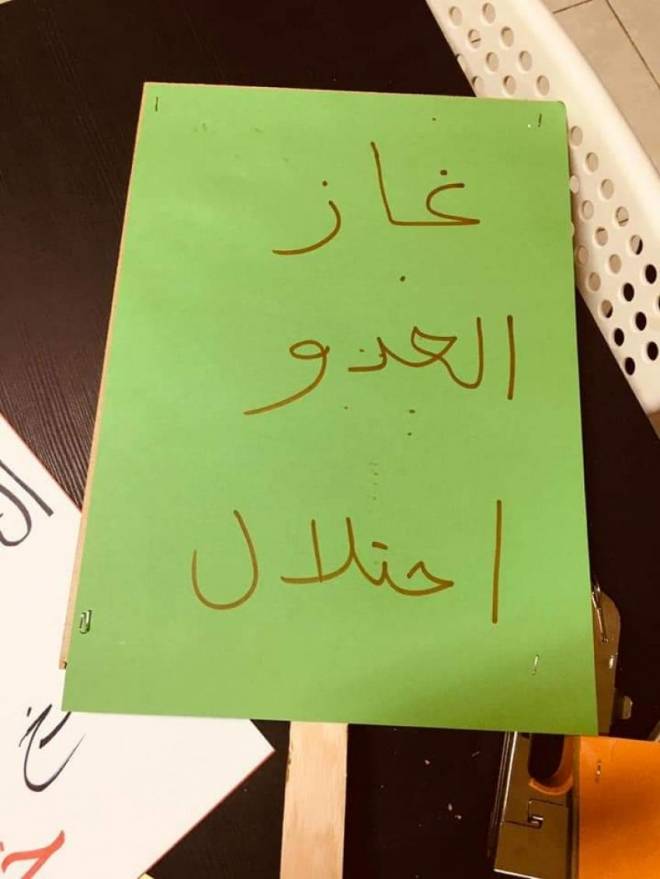 غاز
العدو
احتلال